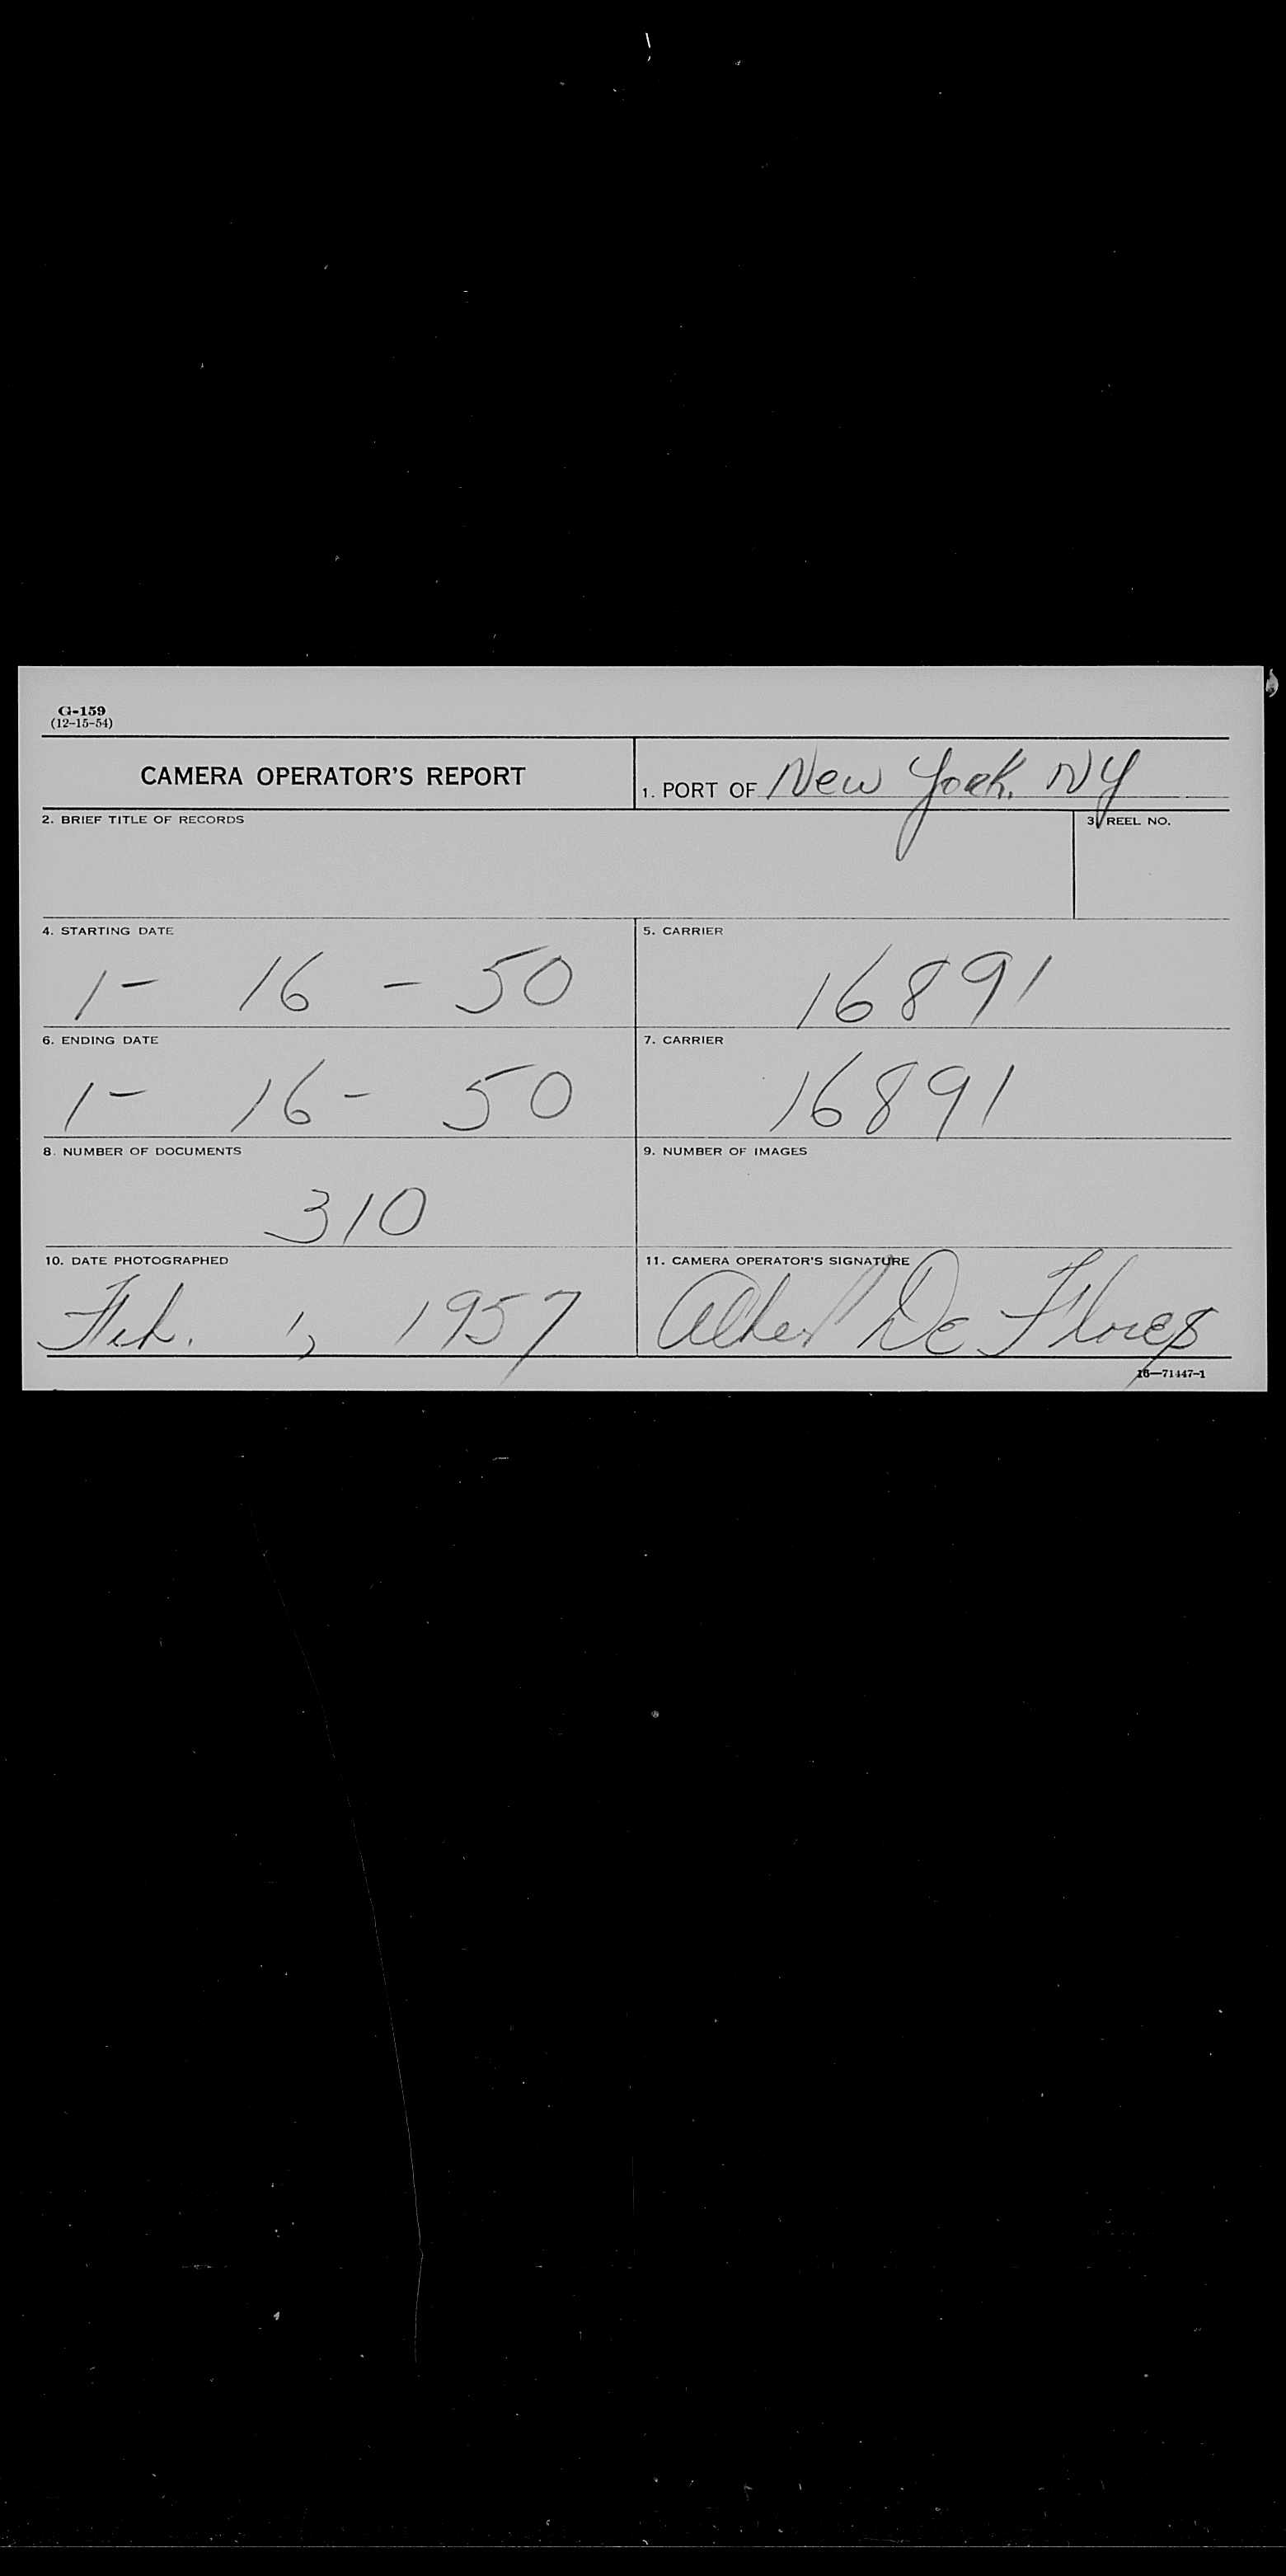 G-159
(12-15-54)
CAMERA OPERATOR'S REPORT
1. PORT OF New York, NY
2. BRIEF TITLE OF RECORDS
3. REEL NO.
4. STARTING DATE
1- 16 - 50
5. CARRIER
16891
6. ENDING DATE
1- 16 - 50
7. CARRIER
16891
8. NUMBER OF DOCUMENTS
310
9. NUMBER OF IMAGES
10. DATE PHOTOGRAPHED
Feb. 1, 1957
11. CAMERA OPERATOR'S SIGNATURE
De Flores
16—71447-1